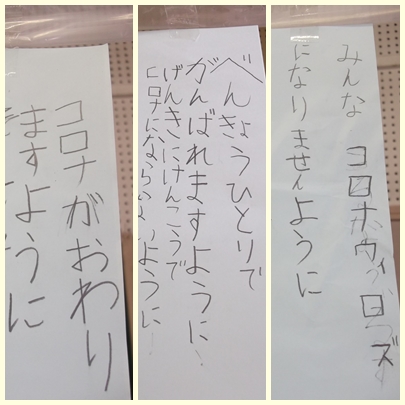 コロナがおわり
ますように
べんきょうひとりで
がんばれますように!
げんきにけんこうで
コロナになら ように
みんな コロナ
になりませんように